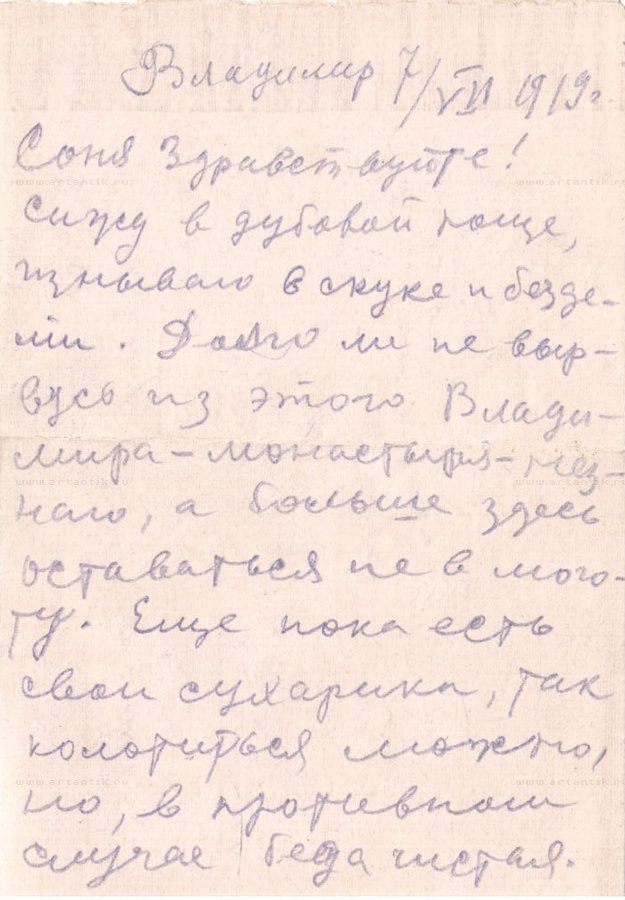 Владимир 7/VII 1919г
Соня Здравствуйте!
Сижу в дубовой роще,
изнываю в скуке и безде-
лии. Долго ли не выр-
вусь из этого Влади-
мира-монастыря-нез-
наю, а больше здесь
оставаться не в мого-
ту. Еще пока есть
свои сухарики, так
колотиться можно,
но, в противном
случае беда чистая.
www.artantik.ru